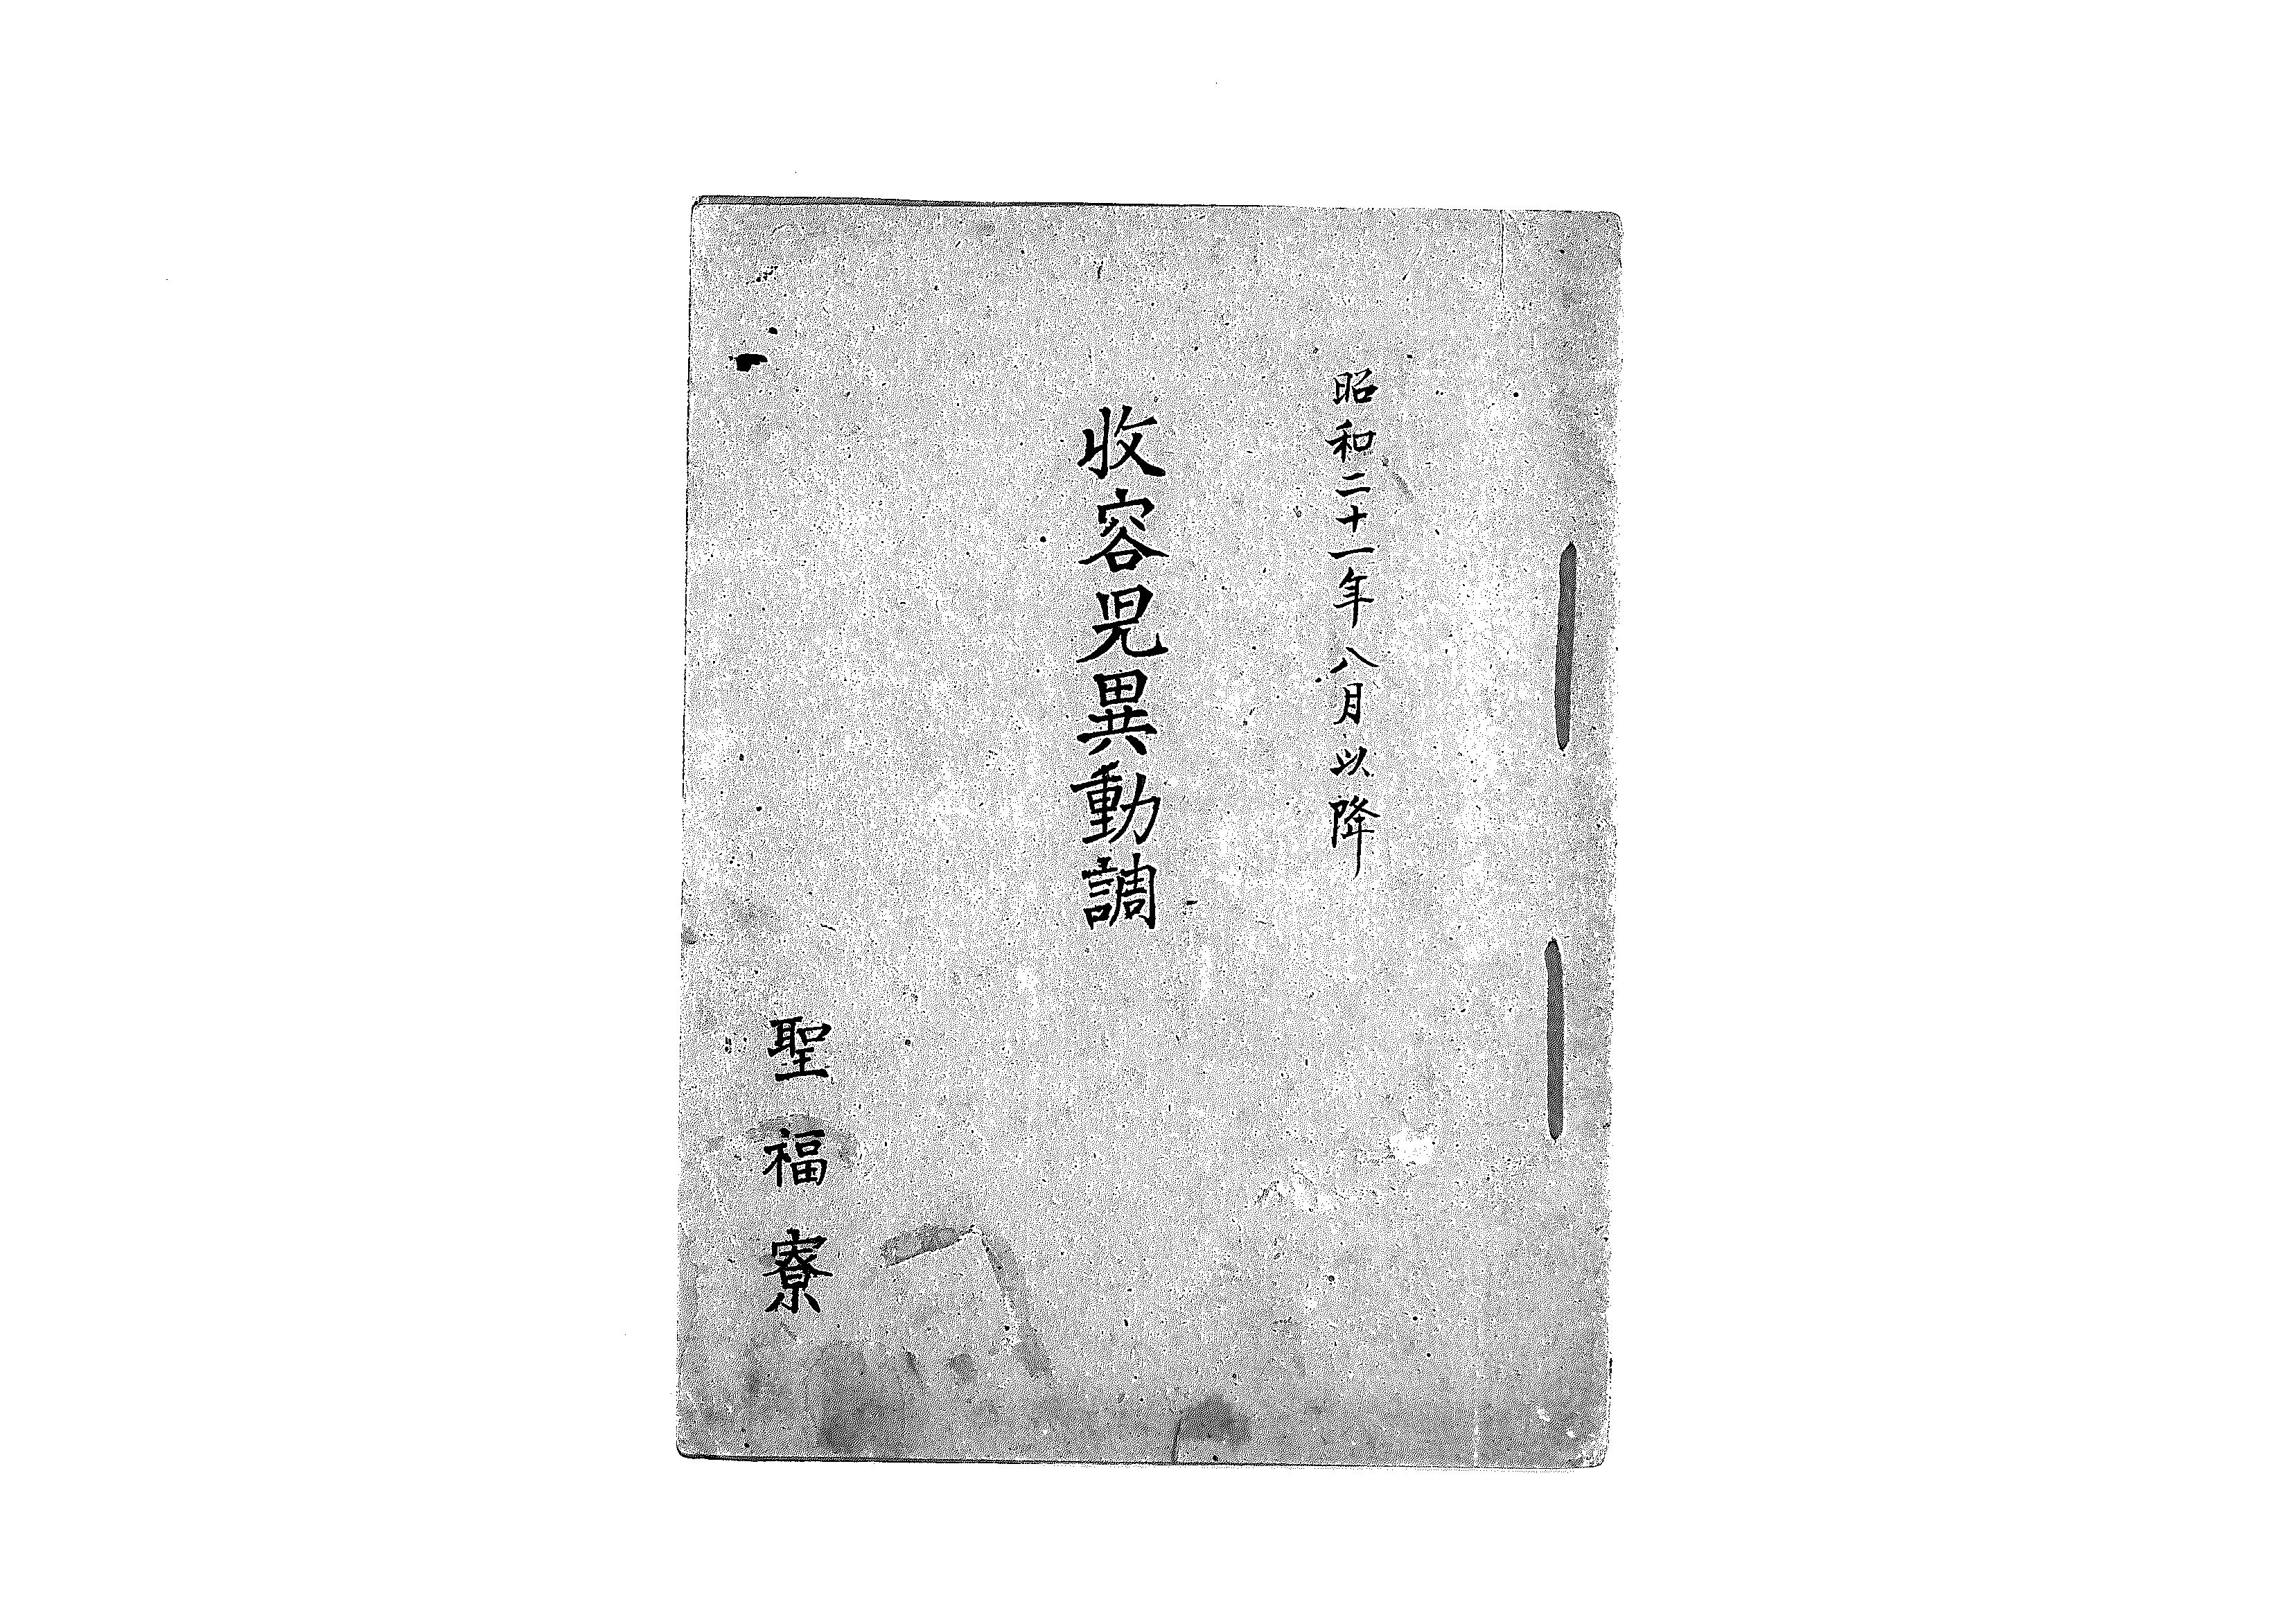 昭和二十一年八月以降
收容児異動調
聖福寮